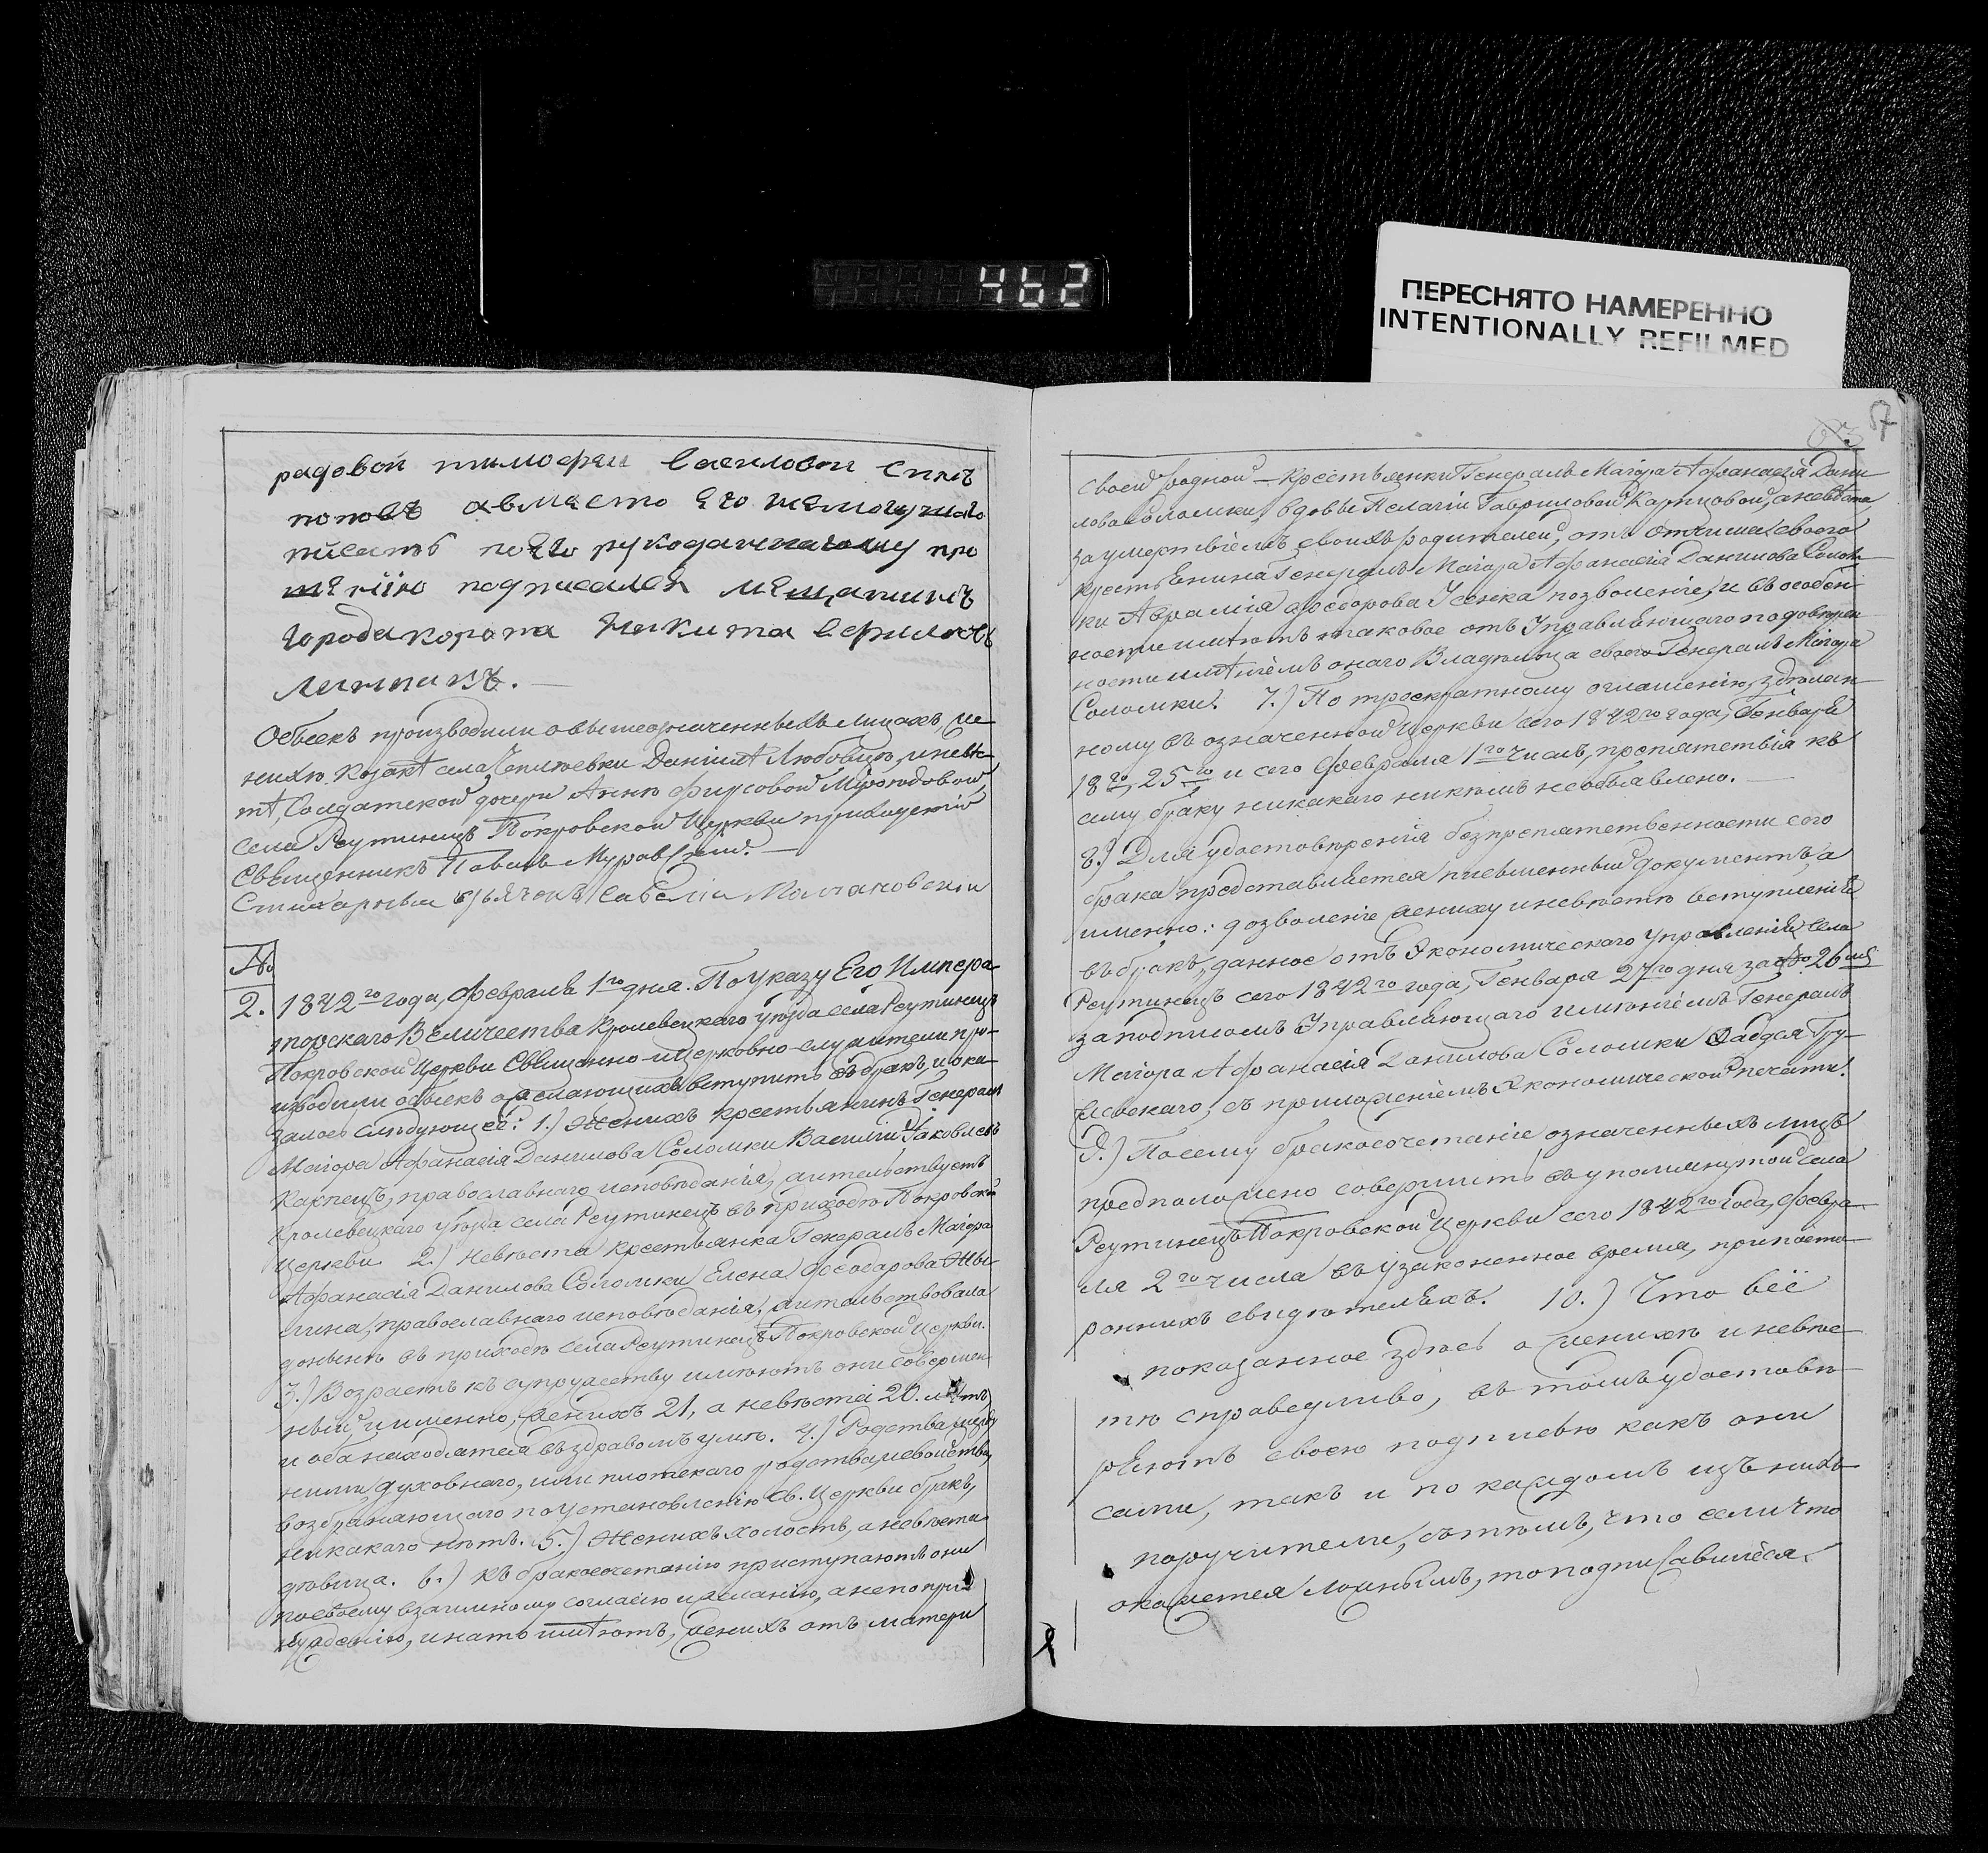 462
ПЕРЕСНЯТО НАМЕРЕННО
INTENTIONALLY REFILMED
рядовой тимофеи василовъ синъ
поповъ авместо его немогущаго
писать по его рукоданному про
шению подписался мещанинъ
города коропа Никита
Обыскъ производили овышеозначенныхъ лицахъ, же
нихѣ Козакѣ села Чепліевки Даніилѣ Любовцю, иневѣс
тѣ, Солдатской дочери Аннѣ Фирсовой
села Реутинецъ Покровской Церкви приходскій
Священникъ Павелъ Муравскій.
Стихарный дьячекъ Савелій Молчановскій
№
2. 1842го года, Февраля 1го дня. По Указу Его Импера
торскаго Величества Кролевецкаго уѣзда села Реутинецъ
Покровской Церкви Священно-и Церковно-служители про-
изводили обыскъ ожелающихъ вступить въ бракъ, и ока-
залось слѣдующее: 1.) Женихъ крестьянинъ Генералъ
Маіора Афанасія Данилова Соломки Василій Яковлевъ
Карпецъ, православнаго исповѣданія, жительствуетъ
Кролевецкаго уѣзда села Реутинецъ въ приходѣ Покровской
Церкви. 2.) Невѣста крестьянка Генералъ Маіора
Афанасія Данилова Соломки Елена Феодорова
православнаго исповѣданія, жительствовала
донынѣ въ приходѣ села Реутинецъ Покровской Церкви.
3.) Возрастъ къ супружеству имѣютъ они совершен-
ный, и именно, женихъ 21, а невѣста 20. лѣтъ
и оба находятся въ здравомъ умѣ. 4.) Родства между
ними, духовнаго, или плотскаго родства, исвойства,
возбраняющаго по установленію Св. Церкви бракъ,
никакого нѣтъ. 5.) Женихъ холостъ, а невѣста
дѣвица. 6.) Къ бракосочетанію приступаютъ они
посвоему взаимному согласію ижеланію, а непопри-
нужденію, и нато имѣютъ, женихъ отъ матери
67
своей родной – крестьянки Генералъ Маіора Афанасія Дани
лова Соломки, вдовы Пелагіи Гавриловой Карпцовой, а невѣста
за умертвіемъ своихъ родителей, отъ отчима своего
крестьянина Генералъ Маіора Афанасія Данилова Солом-
ки Аврамія Феодорова Усенка позволеніе, и въ особен-
ности имѣютъ таковое отъ Управляющаго
имѣніемъ онаго Владѣльца своего Генералъ Маіора
Соломки. 7.) По троекратному оглашенію, здѣлан-
ному въ означенной Церкви сего 1842го года, Генваря
18го, 25го и сего Февраля 1го чиселъ, препятствія къ
сему браку никакаго никѣмъ необъявлено.
8.) Для удостовѣренія безпрепятственности сего
брака представляется письменный документъ, а
именно: дозволеніе жениху иневѣстѣ вступленія
въ бракъ, данное отъ Экономическаго Управленія села
Реутинецъ сего 1842го года, Генваря 27го дня за № 26мъ
за подписомъ Управляющаго имѣніемъ Генералъ
Маіора Афанасія Данилова Соломки Фаддея Гру-
евскаго, съ приложеніемъ Экономической печати.
9.) Посему бракосочетаніе означенныхъ лицъ
предположено совершить въ упомянутой села
Реутинецъ Покровской Церкви сего 1842го года, Февра-
ля 2го числа въ узаконенное время, при посто-
роннихъ свидѣтеляхъ. 10.) Что всё
показанное здѣсь о женихѣ и невѣс-
тѣ справедливо, въ томъ удостовѣ-
ряютъ своею подписью какъ они
сами, такъ и по каждомъ изъ нихъ
поручители, съ тѣмъ, что если что
окажется ложнымъ, то подписавшіеся